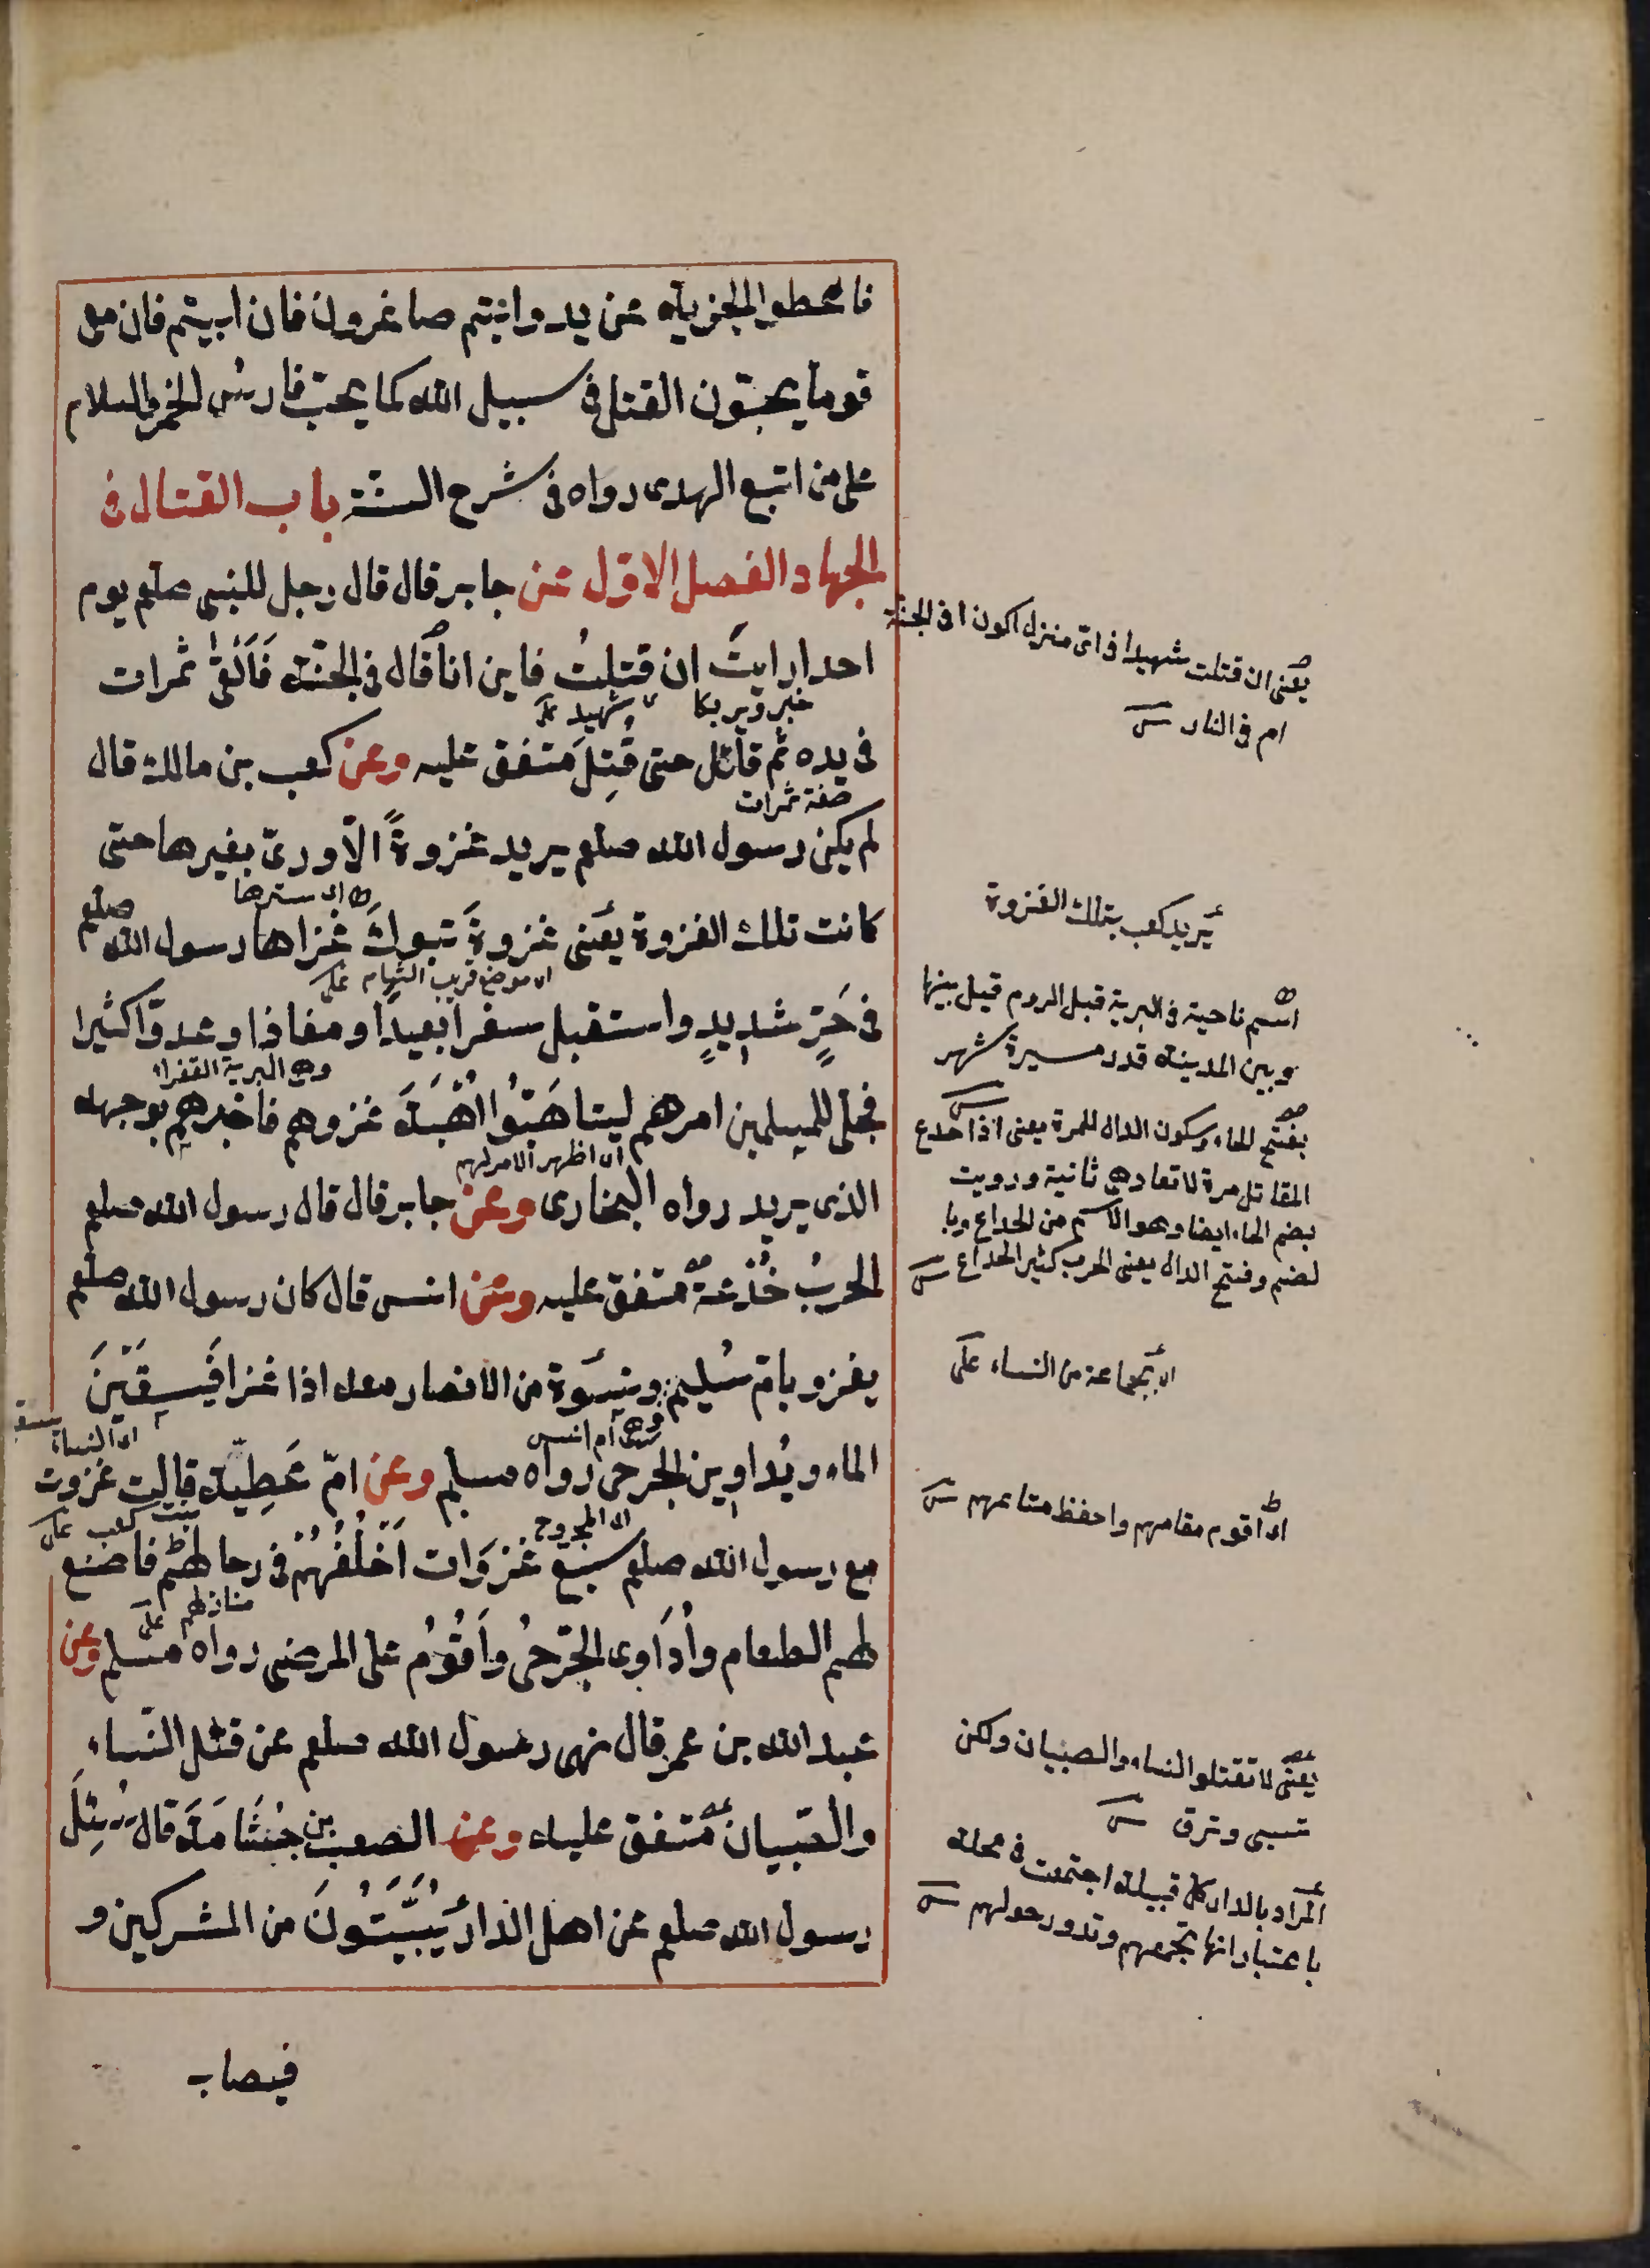 فاعطوا الجزية عن يد وانتم صاغرون فان ابيتم فان معى
قوما يحبّون القتل فى سبيل الله كما يحبّ فارس الخمر والسلام
على من اتبع الهدى رواه فى شرح السنّة باب القتال فى
الجهاد الفصل الاوّل عن جابر قال قال رجل للنبى صلعم يوم
احد ارايتَ ان قتلتُ فاين انا قال فى الجنّة فَاَلْقى تمرات
فى يده ثم قاتل حتى قُتِلَ متفق عليه وعن كعب بن مالك قال
صفة تمرات
لم يكن رسول الله صلعم يريد غزوةً الّا ورىّ بغيرها حتى
اى سترها
كانت تلك الغزوة يعنى غزوةَ تبوكَ غزاها رسول الله صلعم
اى موضع قريب الشام على
فى حَرٍّ شديدٍ واستقبل سفرا بعيدًا ومفازا وعدوّا كثيرا
وهى البرية القفراء
فجلّى للمسلمين امرهم ليتاهَبّوُا اُهْبَةَ غزوهم فاخبرهم بوجهه
اى اظهر الامر لهم
الذى يريد رواه البخارى وعن جابر قال قال رسول الله صلعم
الحربُ خُدْعة متفق عليه وعن انس قال كان رسول الله صلعم
يغزو بامّ سُليم ونِسَوة من الانصار معه اذا غزا فَيسقَيْنَ
وهى ام انس
اى النساء
الماء ويُداوين الجرحى رواه مسلم وعن امّ عَطِيّة قالت غزوت
اى المجروح
بنت كعب على
مع رسول الله صلعم سبع غزَوات اَخْلُفُهُمْ فى رحالهم فاصنع
منازلهم على
لهم الطعام واُدَاوى الجَرحىُ واَقوُمُ على المرضى رواه مسلم وعن
عبد الله بن عمر قال نهى رسول الله صلعم عن قتل النّساء
والصّبيان متفق عليه وعن الصعب بن جثّامَة قال سُئِلَ
رسول الله صلعم عن اهل الدار يُبَيَّتُونَ من المشركين و
فيصاب
يعنى ان قتلت شهيدا فى اىّ منزل اكون افى الجنة
ام فى النار
يريد كعب بتلك الغزوة
اسم ناحية فى البرية قبل الروم قيل بينها
وبين المدينة قدر مسيرة شهر
بفتح الخاء وسكون الدال للمرة يعنى اذا خدع
المقاتل مرة لا تعادهى ثانية ورويت
بضم الخاء ايضا وهو الاسم من الخداع وبا
لضم وفتح الدال يعنى الحرب كثير الخداع
اى بجماعة من النساء على
اى اقوم مقامهم واحفظ متاعهم
يعنى لا تقتلوا النساء والصبيان ولكن
تسبى وترق
المراد بالدار كل قبيلة اجتمعت فى محلة
باعتبار انها تجمعهم وتدور حولهم